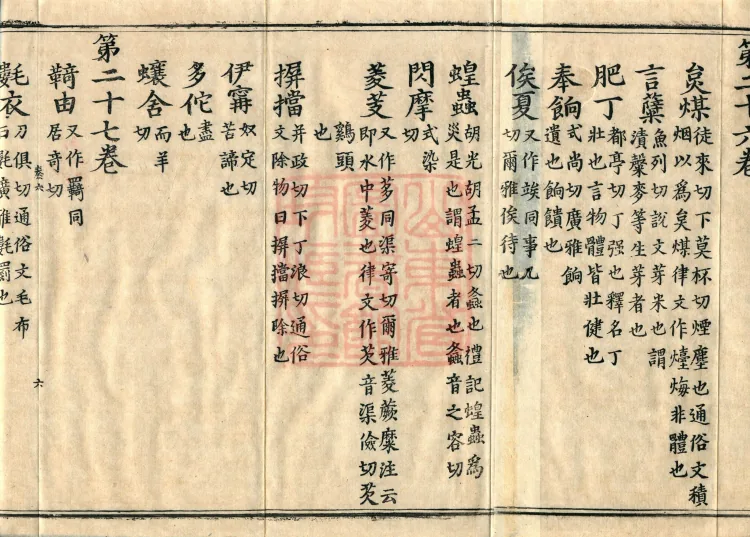 第二十六卷
炱煤徒來切下莫杯切煙塵也通俗文積
烟以爲炱煤律文作烸非體也
言糵魚列切說文芽米也謂
漬穀麥等生芽者也
肥丁都亭切丁强也釋名丁
壯也言物體皆壯健也
奉餉式尚切廣雅餉
遺也餉饋也
俟夏又作竢同事几
切爾雅俟待也
蝗蟲胡光胡孟二切螽也禮記蝗蟲爲
災是也謂蝗蟲者也螽音之容切
閃摩式染
切
菱芰又作茤同渠寄切爾雅菱蕨糜注云
即水中菱也律文作芡音渠儉切芡
鷄頭
也
摒擋并政切下丁浪切通俗
文除物曰摒擋摒除也
伊寗奴定切
苦諦也
多侘盡
也
蠰舍而羊
切
第二十七卷
又作羈同
由居竒切
卷六
六
氀衣力俱切通俗文毛布
曰氀廣雅氀罽也